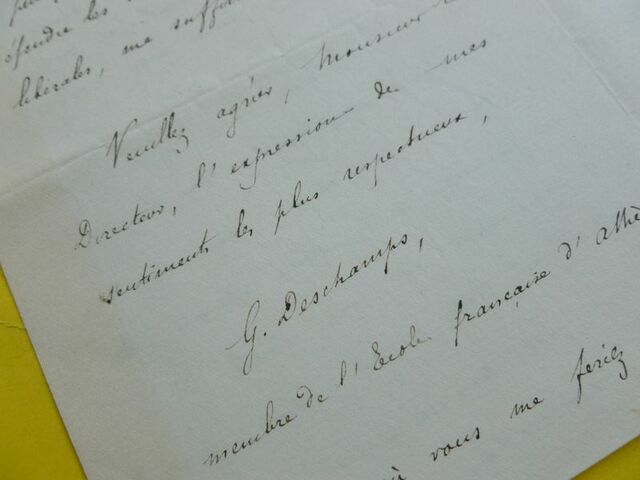 éfendre les
libérales, me suffira
Veuillez agréer, Monsieur
Directeur, l'expression de mes
sentiments les plus respectueux,
G. Deschamps,
membre de l'Ecole française d'Athè
où vous me feriez